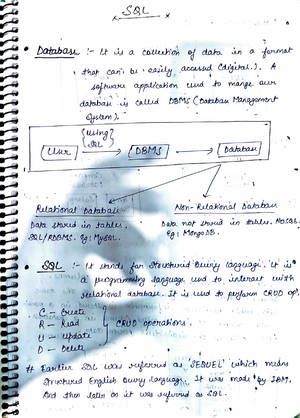 SQL
• Database :- It is a collection of data in a format
that can be easily accessed (digital). A
software application used to mange our
database is called DBMS (Database Management
System).
{using SQL}
User → DBMS → Database
Relational Database
Data stored in tables.
SQL/RDBMS. Eg: MySQL.
Non-Relational Database
Data not stored in tables. NoSQL.
Eg: MongoDB.
• SQL :- It stands for Structured Query language. It is
a programming language used to interact with
relational database. It is used to perform CRUD op.
C - Create
R - Read
U - Update
D - Delete
} CRUD operations.
# Earlier SQL was referred as 'SEQUEL' which means
Structured English Query Language. It was made by IBM.
And then later on it was referred as SQL.